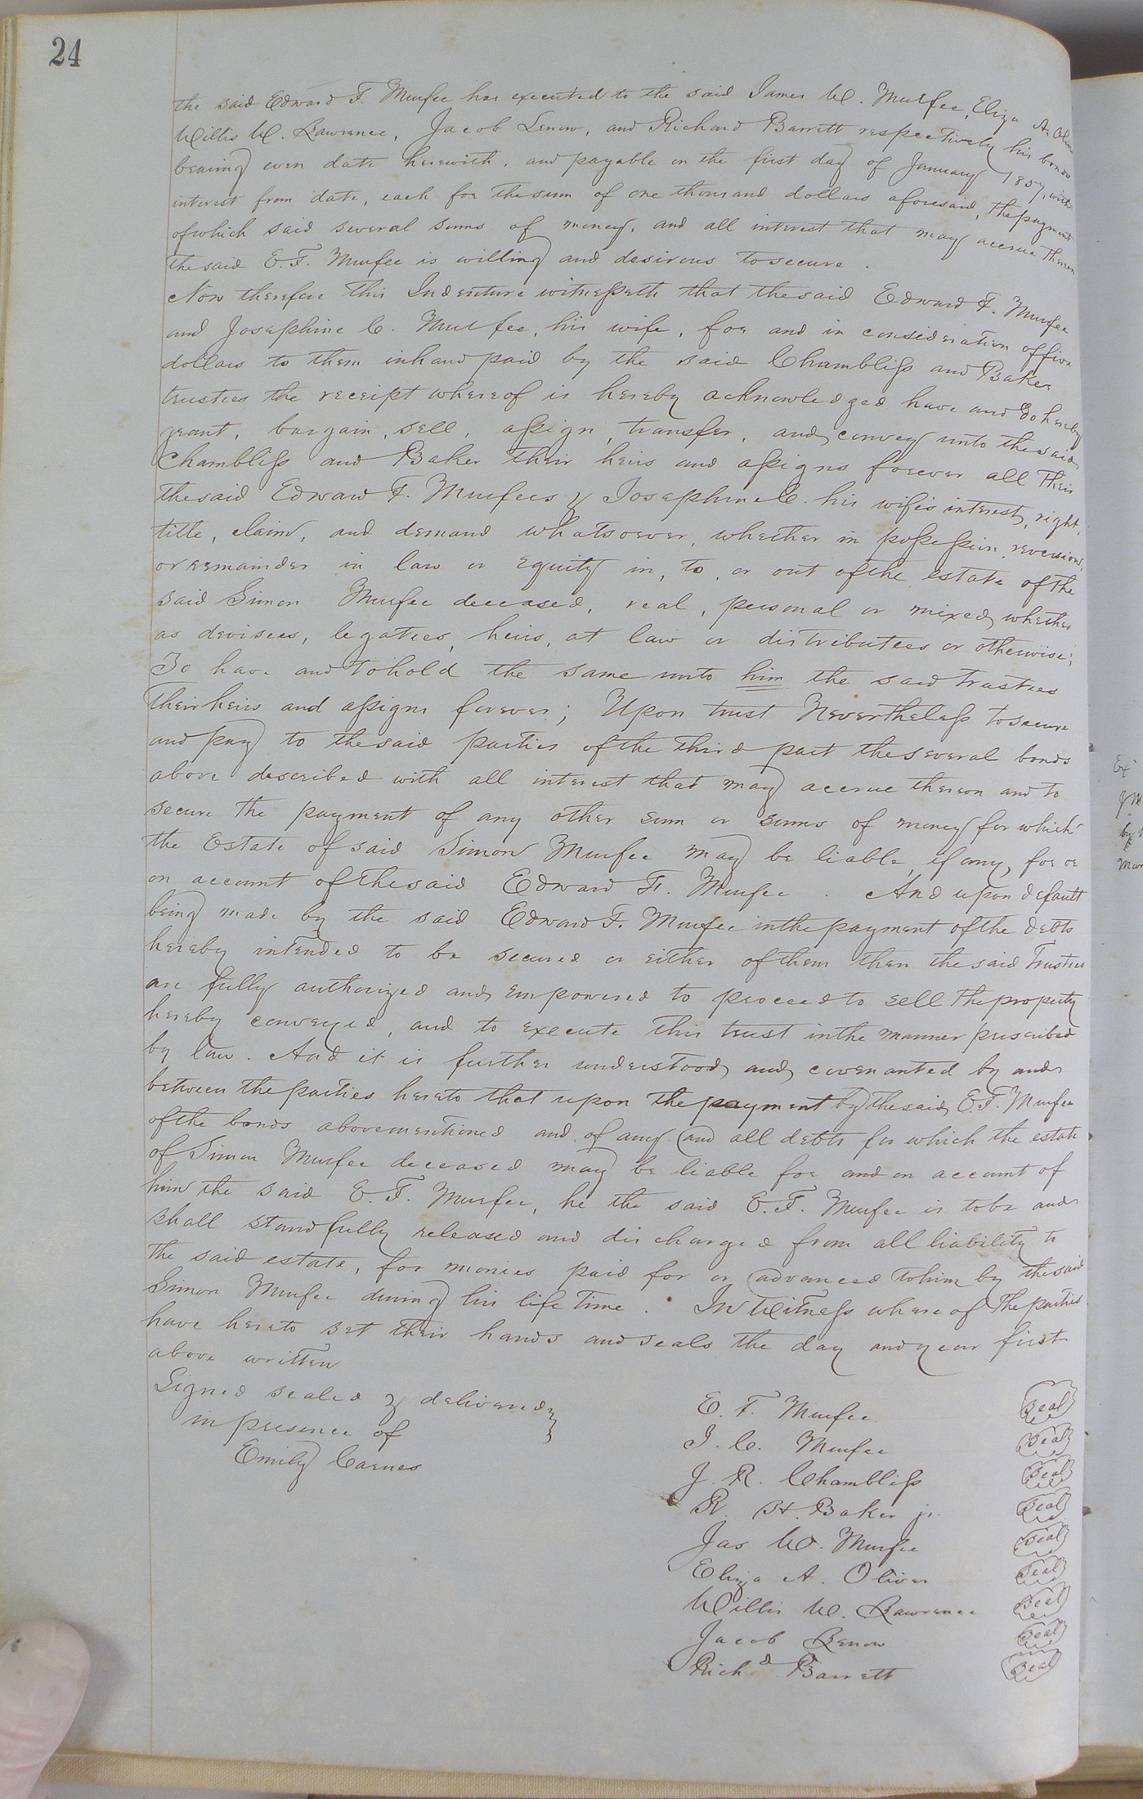 24
the said Edward F. Murfee has executed to the said James W. Murfee, Eliza A. Oliver
Willis W. Lawrence, Jacob Lenow, and Richard Barrett respectively his bonds
bearing even date herewith, and payable on the first day of January 1857, with
interest from date, each for the sum of one thousand dollars aforesaid, the payment
of which said several sums of money, and all interest that may accrue thereon
the said E. F. Murfee is willing and desirous to secure.
Now therefore this Indenture witnesseth that the said Edward F. Murfee
and Josephine C. Murfee, his wife, for and in consideration of five
dollars to them in hand paid by the said Chambliss and Baker
trustees the receipt whereof is hereby acknowledged have and do hereby
grant, bargain, sell, assign, transfer, and convey unto the said
Chambliss and Baker their heirs and assigns forever all their
the said Edward F. Murfees & Josephine C. his wife's interest, right,
title, claim, and demand whatsoever, whether in possession, reversion,
or remainder in law or equity in, to, or out of the estate of the
said Simon Murfee deceased, real, personal or mixed, whether
as devisees, legatees, heirs, at law or distributees or otherwise;
To have and to hold the same unto him the said trustees
their heirs and assigns forever; Upon trust Nevertheless to secure
and pay to the said parties of the third part the several bonds
above described with all interest that may accrue thereon and to
secure the payment of any other sum or sums of money for which
the Estate of said Simon Murfee may be liable, if any, for or
on account of the said Edward F. Murfee. And upon default
being made by the said Edward F. Murfee in the payment of the debts
hereby intended to be secured or either of them then the said Trustees
are fully authorized and empowered to proceed to sell the property
hereby conveyed, and to execute this trust in the manner prescribed
by law. And it is further understood and covenanted by and
between the parties hereto that upon the payment by the said E. F. Murfee
of the bonds abovementioned and of any and all debts for which the estate
of Simon Murfee deceased may be liable for and on account of
him the said E. F. Murfee, he the said E. F. Murfee is to be and
shall stand fully released and discharged from all liability to
the said estate, for monies paid for or advanced to him by the said
Simon Murfee during his life time. In Witness whereof the parties
have hereto set their hands and seals the day and year first
above written
Signed sealed & delivered
in presence of
Emily Carnes
E. F. Murfee Seal
J. C. Murfee Seal
J. R. Chambliss Seal
R. H. Baker jr. Seal
Jas W. Murfee Seal
Eliza A. Oliver Seal
Willis W. Lawrence Seal
Jacob Lenow Seal
Richd Barrett Seal